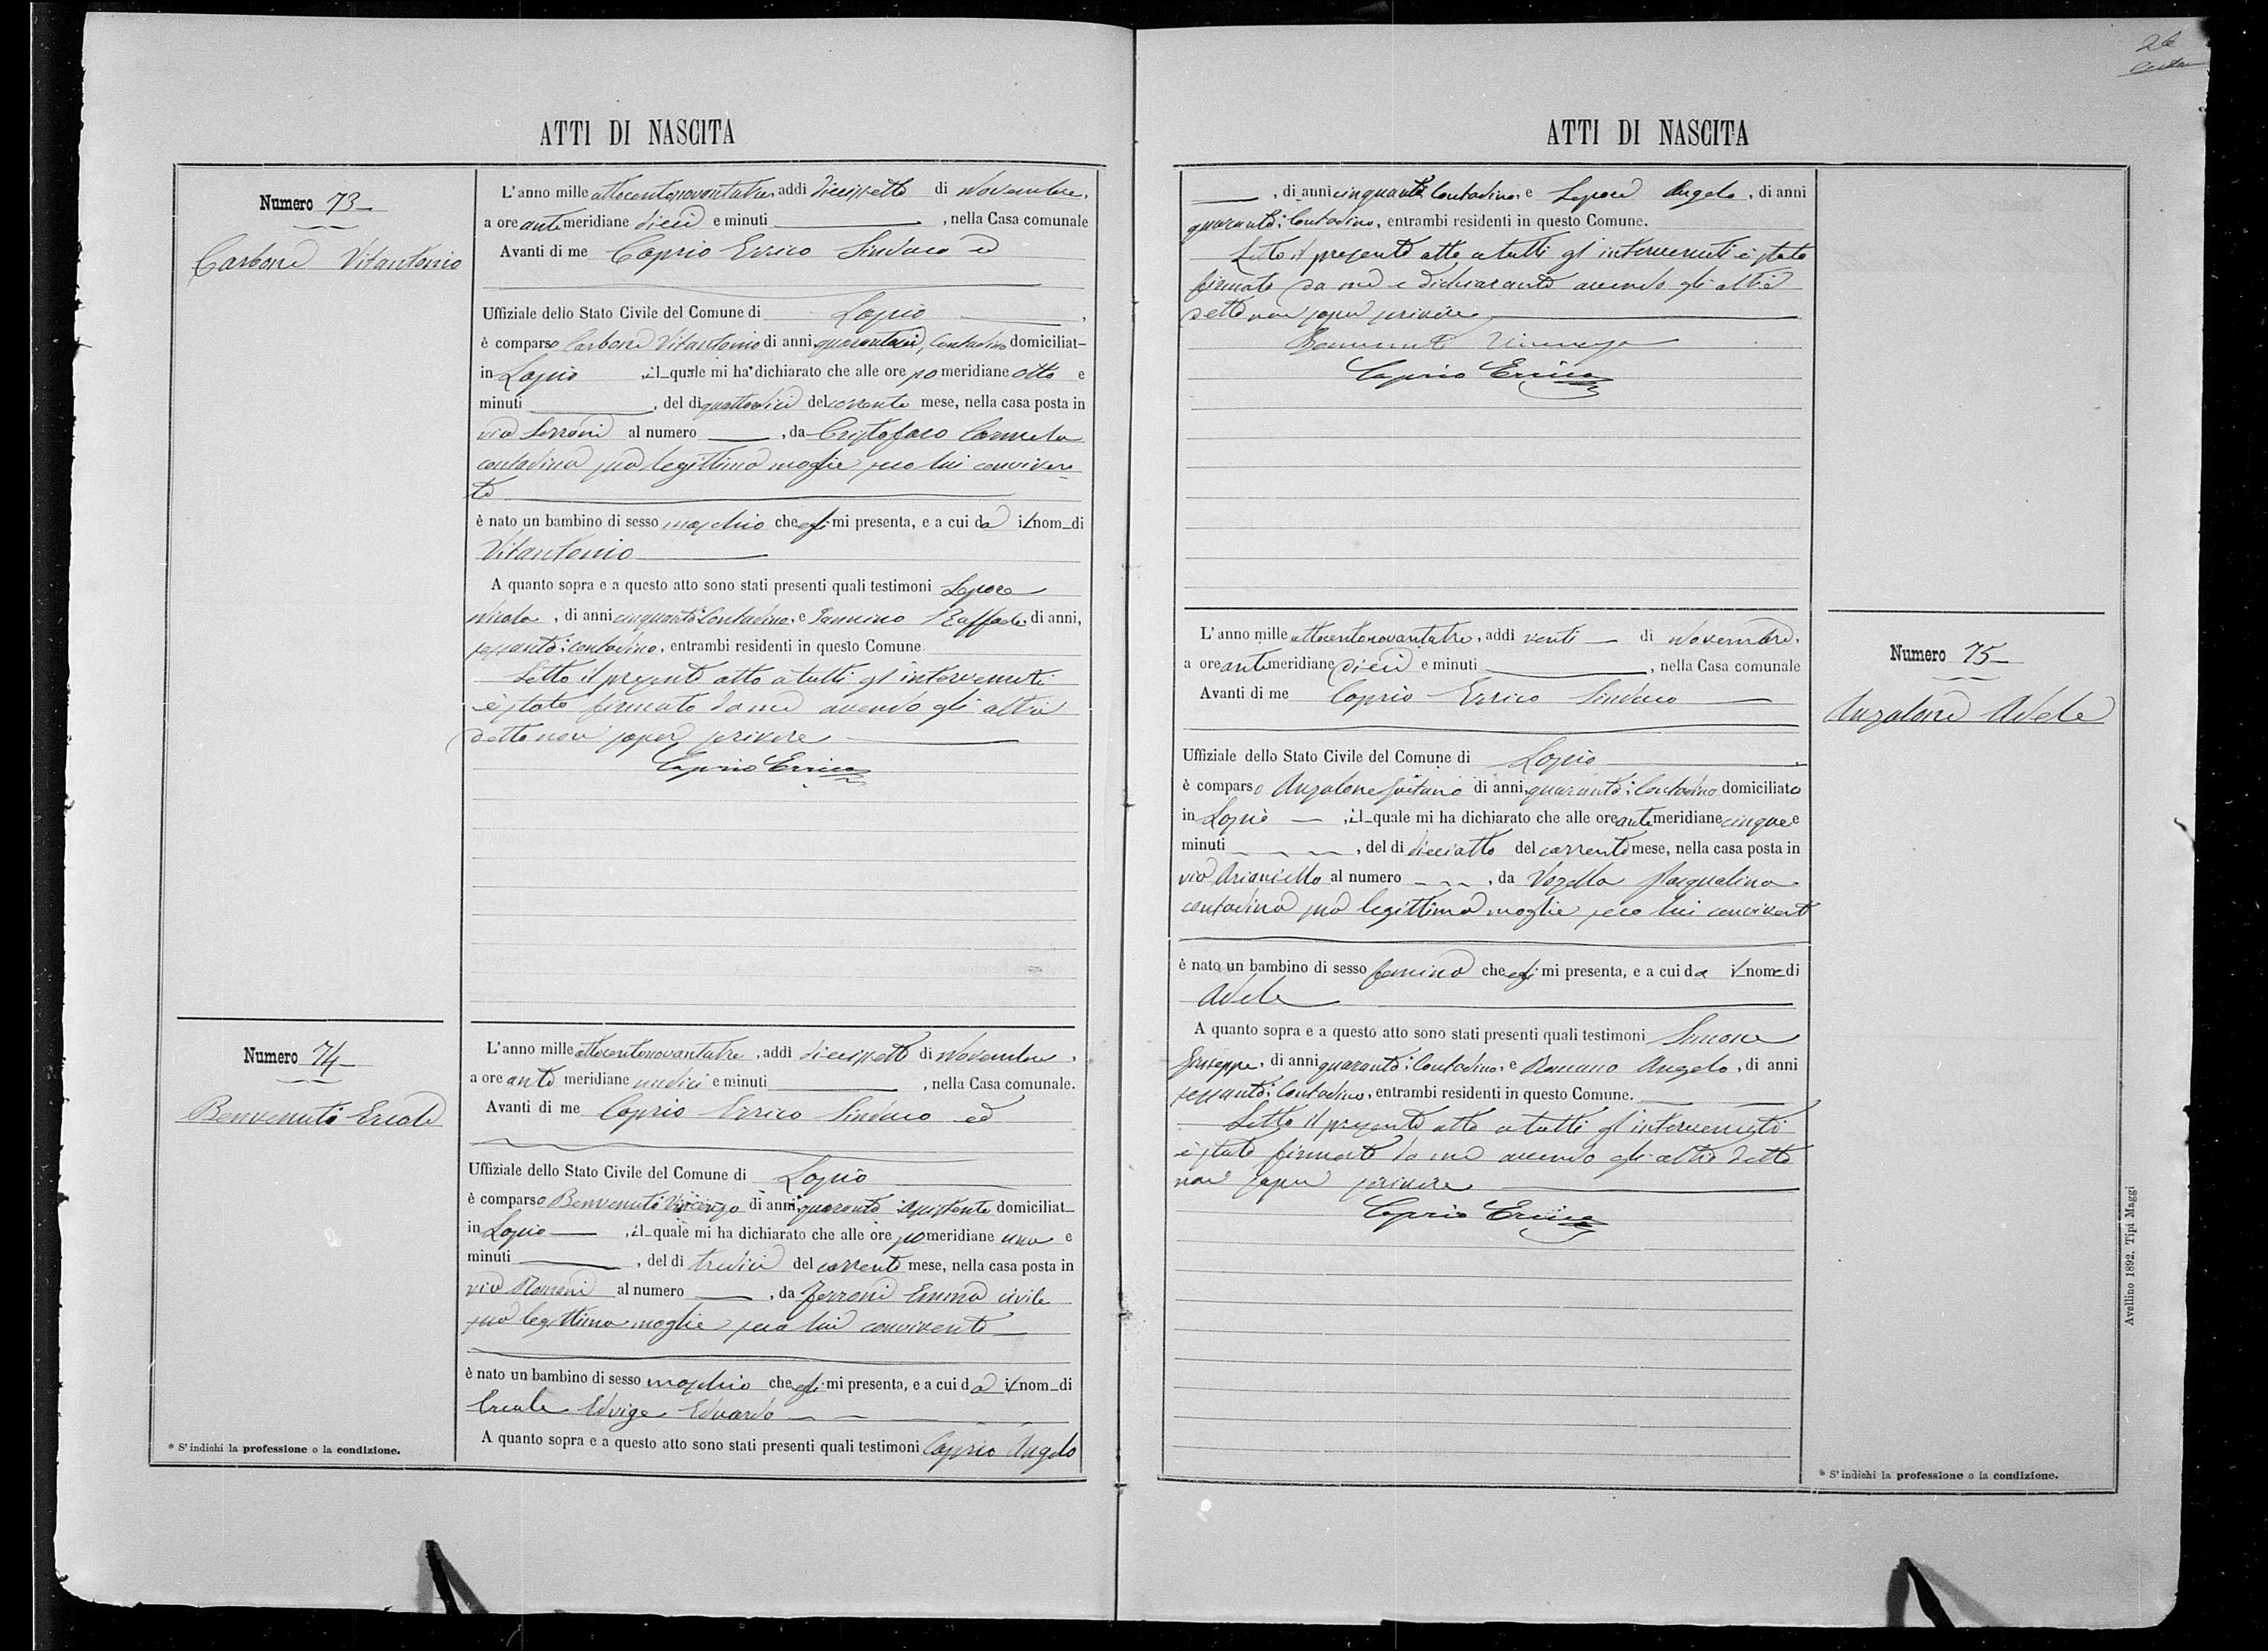 26
ATTI DI NASCITA
Numero 73
Carbone Vitantonio
L'anno mille ottocentonovantatre, addì diecisette di Novembre,
a ore anti meridiane dieci e minuti , nella Casa comunale
Avanti di me Caprio Errico Sindaco ed
Uffiziale dello Stato Civile del Comune di Lapio ,
è comparso Carbone Vitantonio di anni quarantasei, Contadino domiciliat
in Lapio , il quale mi ha dichiarato che alle ore po meridiane otto e
minuti , del dì quattordici del corrente mese, nella casa posta in
via Serroni al numero , da Cristofaro Carmela
contadina sua legittima moglie seco lui conviven-
te
è nato un bambino di sesso maschio che egli mi presenta, e a cui dà il nom di
Vitantonio
A quanto sopra e a questo atto sono stati presenti quali testimoni Lepore
Nicola, di anni cinquanta Contadino, e Iannino Raffaele di anni,
sessanta, contadino, entrambi residenti in questo Comune
Letto il presente atto a tutti gl'intervenuti
è stato firmato da me avendo gli altri
detto non saper scrivere
Caprio Errico
Numero 74
Benvenuti Ercole
L'anno mille ottocentonovantatre, addì diecisette di Novembre,
a ore anti meridiane undici e minuti , nella Casa comunale.
Avanti di me Caprio Errico Sindaco ed
Uffiziale dello Stato Civile del Comune di Lapio
è comparso Benvenuti Vincenzo di anni quaranta Assistente domiciliat
in Lapio , il quale mi ha dichiarato che alle ore po meridiane una e
minuti , del dì tredici del corrente mese, nella casa posta in
via Romani al numero , da Ferroni Emma civile
sua legittima moglie seco lui convivente
è nato un bambino di sesso maschio che egli mi presenta, e a cui dà il nom di
Ercole Edvige Eduardo
A quanto sopra e a questo atto sono stati presenti quali testimoni Caprio Angelo
* S'indichi la professione o la condizione.
ATTI DI NASCITA
, di anni cinquanta Contadino, e Lepore Angelo, di anni
quaranta, Contadino, entrambi residenti in questo Comune.
Letto il presente atto a tutti gl'intervenuti è stato
firmato da me e dichiarante avendo gli altri
detto non saper scrivere
Benvenuti Vincenzo
Caprio Errico
L'anno mille ottocentonovantatre, addì venti di Novembre,
a ore antimeridiane dieci e minuti , nella Casa comunale
Avanti di me Caprio Errico Sindaco
Uffiziale dello Stato Civile del Comune di Lapio
è comparso Anzalone Gaetano di anni quaranta, Contadino domiciliato
in Lapio , il quale mi ha dichiarato che alle ore antimeridiane cinque e
minuti , del dì dieciotto del corrente mese, nella casa posta in
via Arianiello al numero , da Vozella Pasqualina
contadina sua legittima moglie seco lui convivent
è nato un bambino di sesso femina che egli mi presenta, e a cui da il nome di
Adele
A quanto sopra e a questo atto sono stati presenti quali testimoni Simone
Giuseppe, di anni quaranta, Contadino, e Romano Angelo, di anni
sessanta, Contadino, entrambi residenti in questo Comune.
Letto il presente atto a tutti gl'intervenuti
è stato firmato da me avendo gli altri detto
non saper scrivere
Caprio Errico
Numero 75
Anzalone Adele
* S'indichi la professione o la condizione.
Avellino 1892. Tipi Maggi